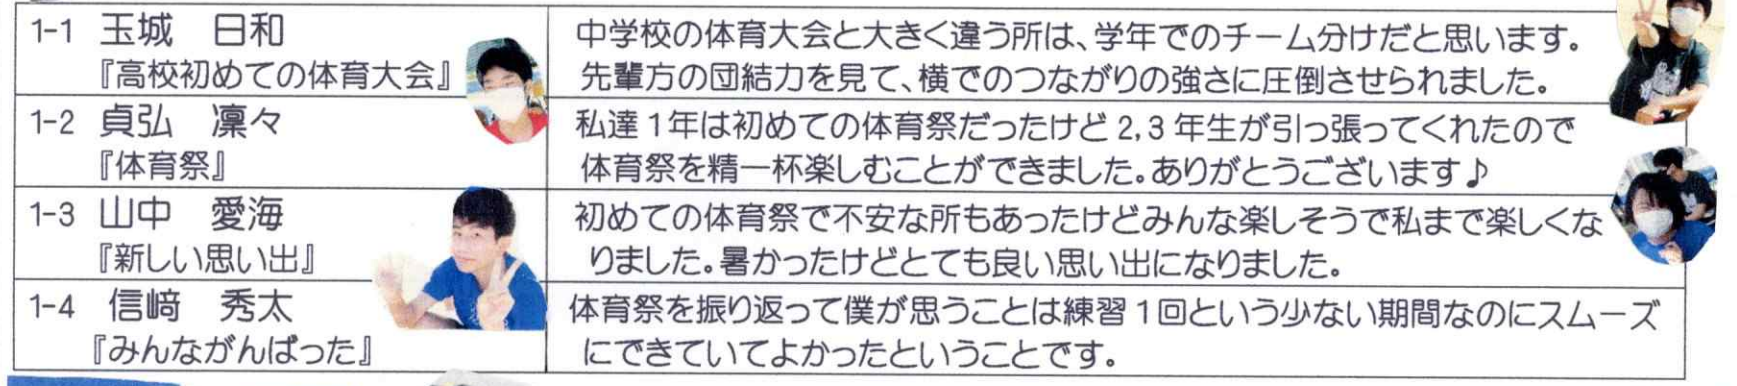 1-1 玉城 日和
『高校初めての体育大会』
中学校の体育大会と大きく違う所は、学年でのチーム分けだと思います。
先輩方の団結力を見て、横でのつながりの強さに圧倒させられました。
1-2 貞弘 凜々
『体育祭』
私達1年は初めての体育祭だったけど2,3年生が引っ張ってくれたので
体育祭を精一杯楽しむことができました。ありがとうございます♪
1-3 山中 愛海
『新しい思い出』
初めての体育祭で不安な所もあったけどみんな楽しそうで私まで楽しくな
りました。暑かったけどとても良い思い出になりました。
1-4 信﨑 秀太
『みんながんばった』
体育祭を振り返って僕が思うことは練習1回という少ない期間なのにスムーズ
にできていてよかったということです。